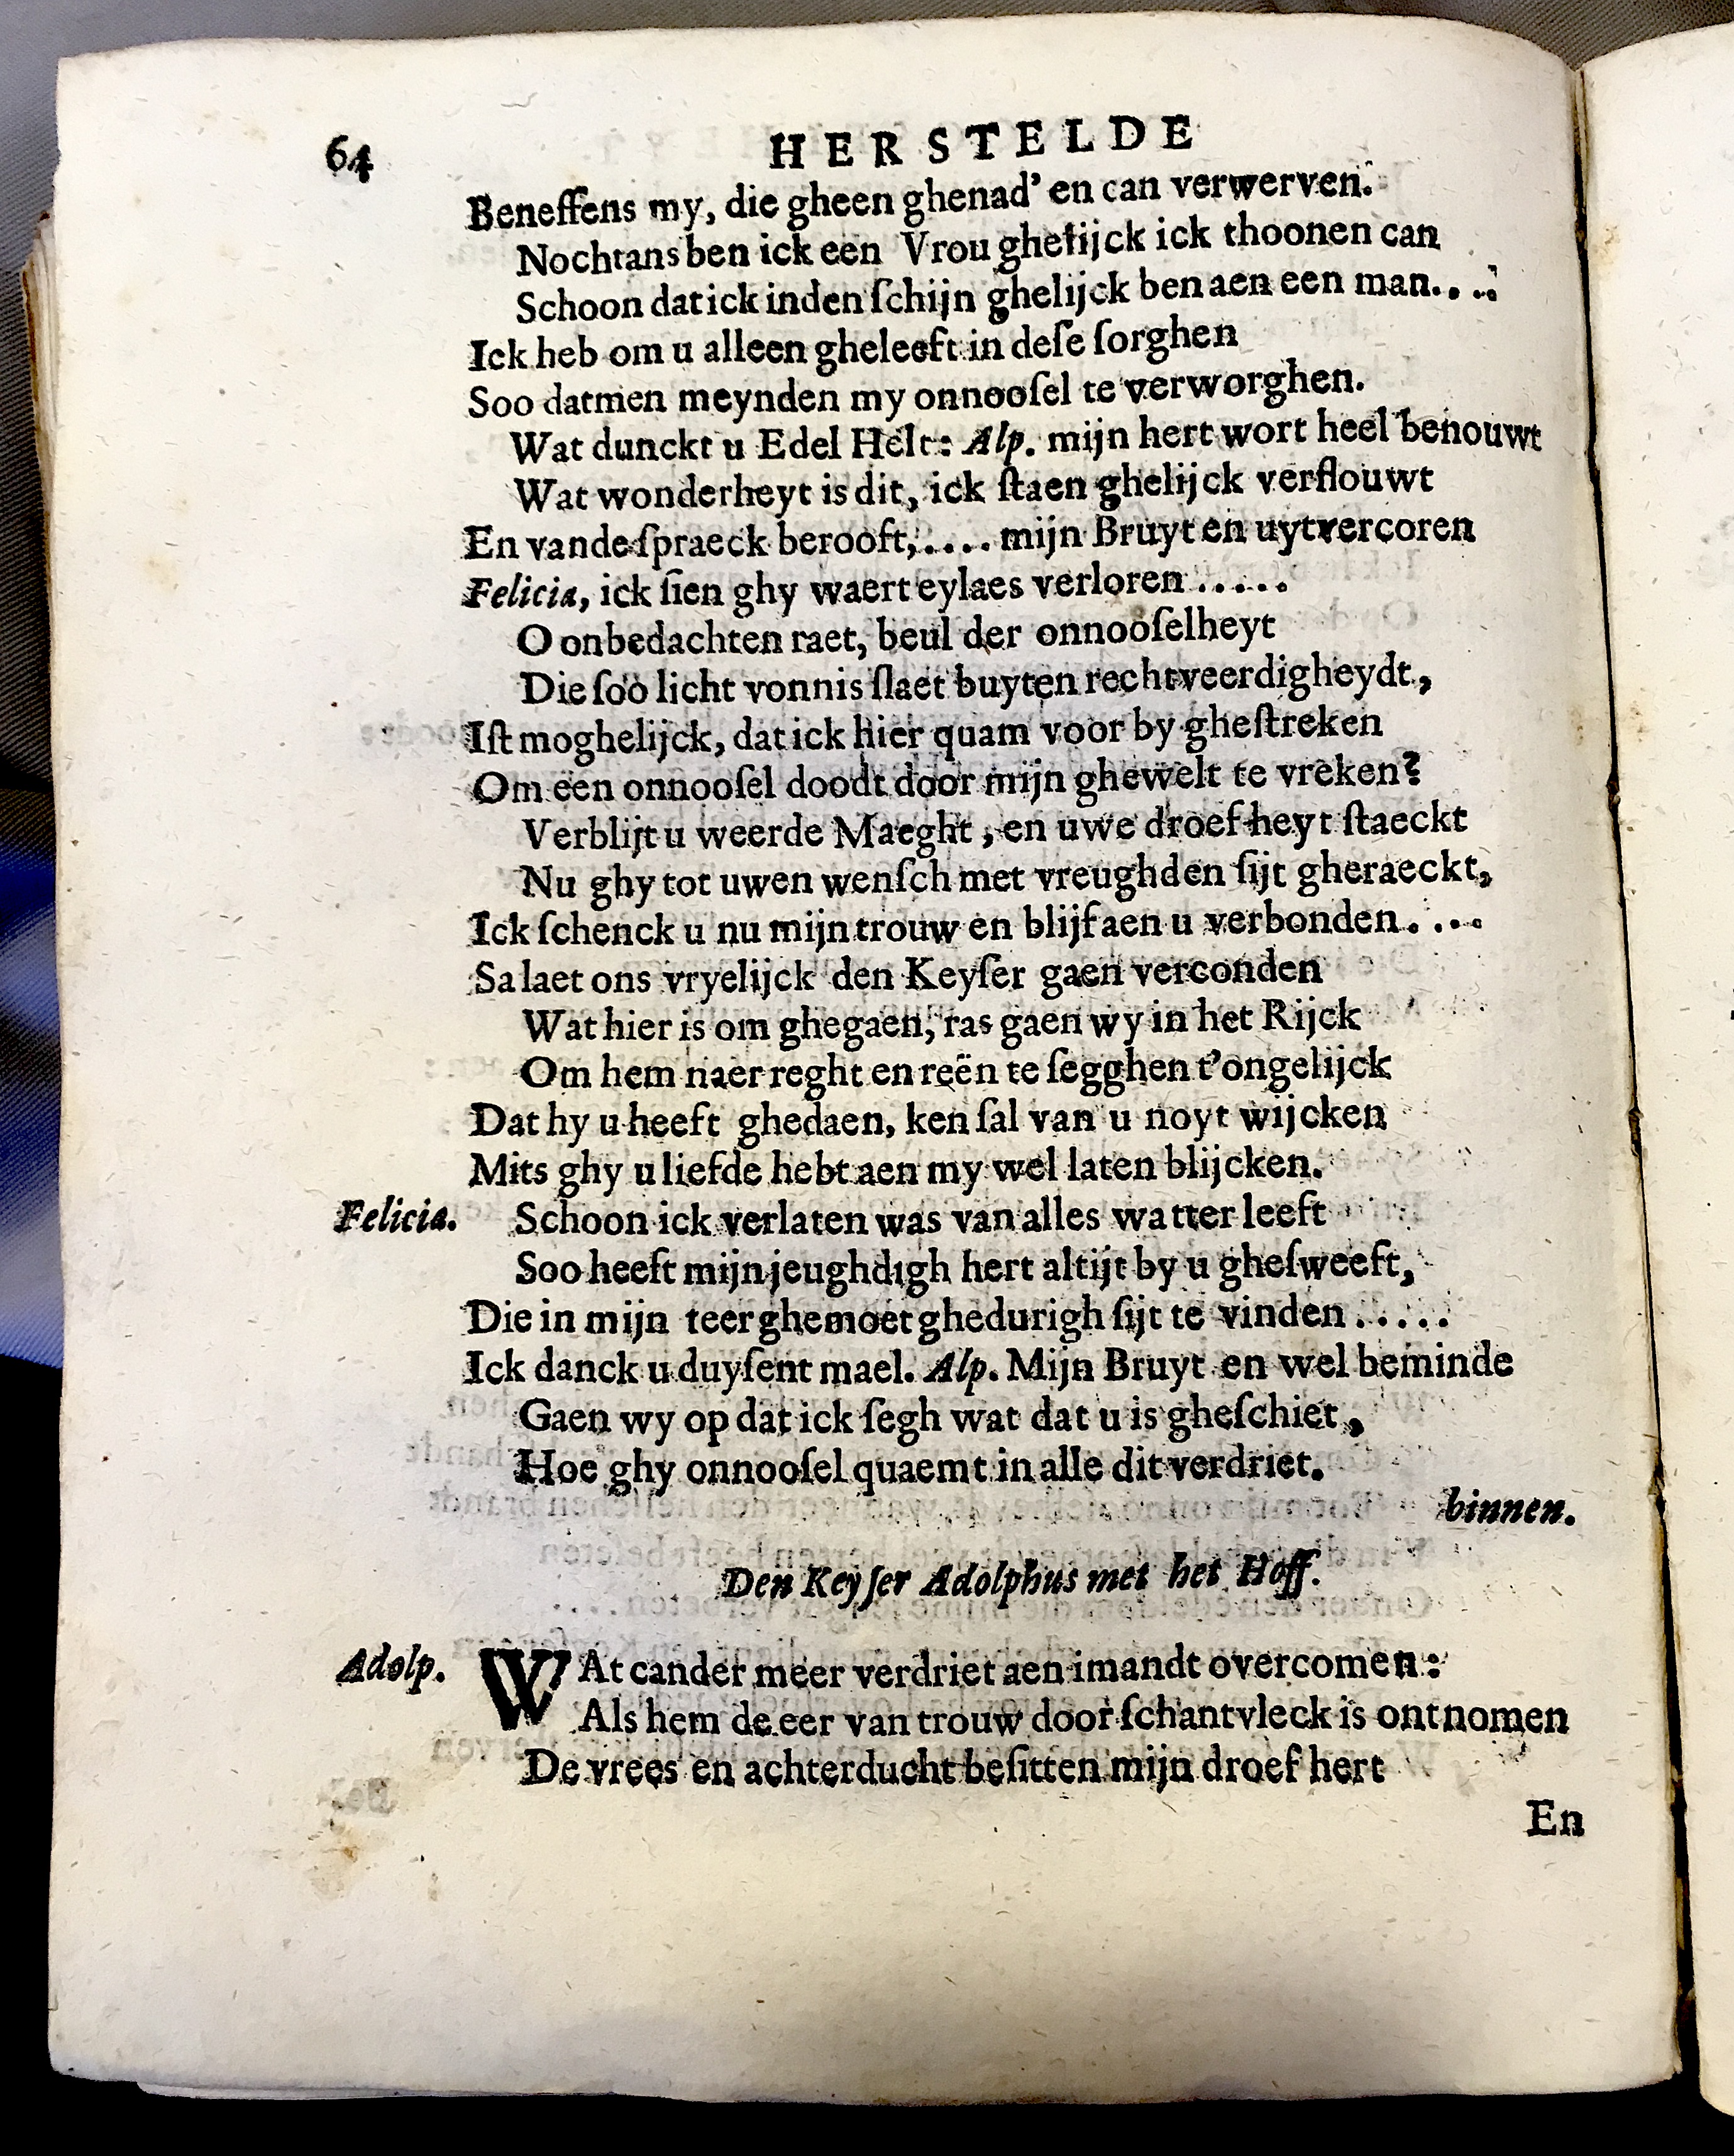 64 HERSTELDE
Beneffens my, die gheen ghenad' en can verwerven.
Nochtans ben ick een Vrou ghelijck ick thoonen can
Schoon dat ick inden ſchijn ghelijck ben aen een man. . ..
Ick heb om u alleen gheleeft in deſe ſorghen
Soo datmen meynden my onnooſel te verworghen.
Wat dunckt u Edel Helt: Alp. mijn hert wort heel benouwt
Wat wonderheyt is dit, ick ſtaen ghelijck verflouwt
En vande ſpraeck berooft, .... mijn Bruyt en uytvercoren
Felicia, ick ſien ghy waert eylaes verloren .....
O onbedachten raet, beul der onnooſelheyt
Die ſoo licht vonnis ſlaet buyten rechtveerdigheydt,
Iſt moghelijck, dat ick hier quam voor by gheſtreken
Om een onnooſel doodt door mijn ghewelt te vreken?
Verblijt u weerde Maeght, en uwe droefheyt ſtaeckt
Nu ghy tot uwen wenſch met vreughden ſijt gheraeckt,
Ick ſchenck u nu mijn trouw en blijf aen u verbonden....
Sa laet ons vryelijck den Keyſer gaen verconden
Wat hier is om ghegaen, ras gaen wy in het Rijck
Om hem naer reght en reën te ſegghen t'ongelijck
Dat hy u heeft ghedaen, ken ſal van u noyt wijcken
Mits ghy u liefde hebt aen my wel laten blijcken.
Felicia. Schoon ick verlaten was van alles watter leeft
Soo heeft mijn jeughdigh hert altijt by u gheſweeft,
Die in mijn teer ghemoet ghedurigh ſijt te vinden .....
Ick danck u duyſent mael. Alp. Mijn Bruyt en wel beminde
Gaen wy op dat ick ſegh wat dat u is gheſchiet,
Hoe ghy onnooſel quaemt in alle dit verdriet.
binnen.
Den Keyſer Adolphus met het Hoff.
Adolp. WAt cander meer verdriet aen imandt overcomen:
Als hem de eer van trouw door ſchantvleck is ontnomen
De vrees en achterducht beſitten mijn droef hert
En